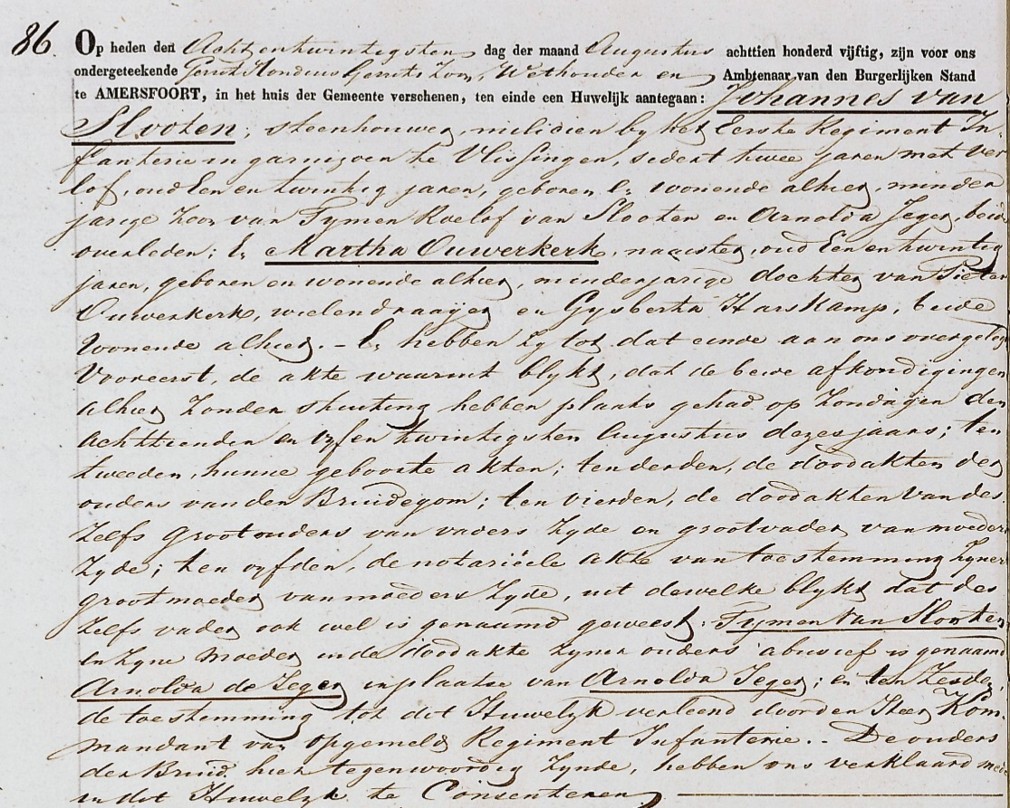 86. Op heden den Achtentwintigsten dag der maand Augustus achttien honderd vijftig, zijn voor ons
ondergeteekende Gerrit Hondius Gerrits Zoon, Wethouder en Ambtenaar van den Burgerlijken Stand
te AMERSFOORT, in het huis der Gemeente verschenen, ten einde een Huwelijk aantegaan: Johannes van
Slooten, steenhouwer, milicien by het Eerste Regiment In-
fanterie in garnizoen te Vlissingen, sedert twee jaren met ver
lof, oud Een en twintig jaren, geboren & wonende alhier, minder
jarige Zoon van Tymen Roelof van Slooten en Arnolda Jeger, beide
overleden; & Martha Ouwerkerk, naaister, oud Een en twintig
jaren, geboren en wonende alhier, minderjarige dochter van Pieter
Ouwerkerk, wielendraayer en Gysberta Harskamp, beide
Wonende alhier. - & hebben zy tot dat einde aan ons overgelegd
Vooreerst, de akte waaruit blykt, dat de beide afkondigingen
alhier zonder stuiting hebben plaats gehad op Zondagen den
Achttienden en vyfen twintigsten Augustus dezes jaars; ten
tweeden, hunne geboorte akten; ten derden, de doodakten der
ouders van den Bruidegom; ten vierden, de doodakten van des
Zelfs grootouders van vaders zyde en grootvader van moeders
Zyde; ten vyfden, de notariëele akte van toestemming zyner
grootmoeder van moeders zyde, uit dewelke blykt dat des
Zelfs vader ook wel is genaamd geweest: Tymen van Slooten
en zyne Moeder in de doodakte zyner ouders abusief is genaamd
Arnolda de Jeger in plaats van Arnolda Jeger; en ten Zesden,
de toestemming tot dit Huwelyk verleend door den Heer Kom-
mandant van opgemeld Regiment Infanterie. - De ouders
der Bruid hier tegenwoordig zynde, hebben ons verklaard mede
in dit Huwelyk te Consenteren